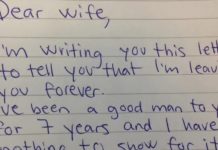 Dear wife,
I'm writing you this lett
to tell you that I'm leav
you forever.
I've been a good man to y
for 7 years and I have
nothing to show for it